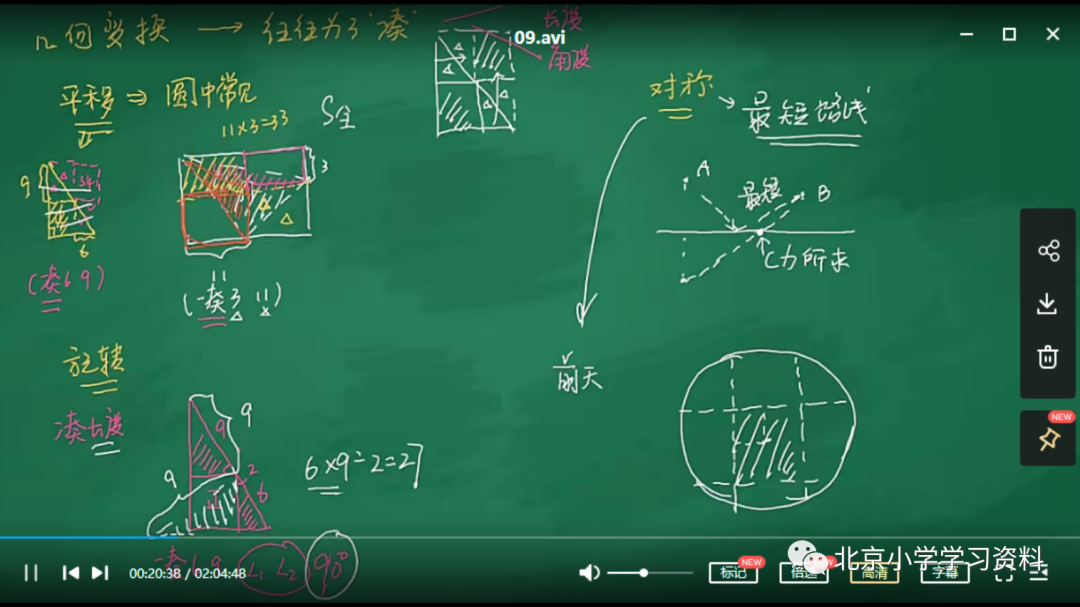 09.avi
几何变换 → 往往为了"凑"
长度
角度
平移 ⇒ 圆中常见
11×3=33
S全
3
9
6
(凑6 9)
11
(一凑3 11)
对称 → 最短路线
A
最短
B
C为所求
旋转
凑长度
9
9
9
2
6
6×9÷2=27
前天
一凑6 9 L₁ L₂ 90°
00:20:38 / 02:04:48
标记
NEW
倍速
高清
字幕
NEW
北京小学学习资料